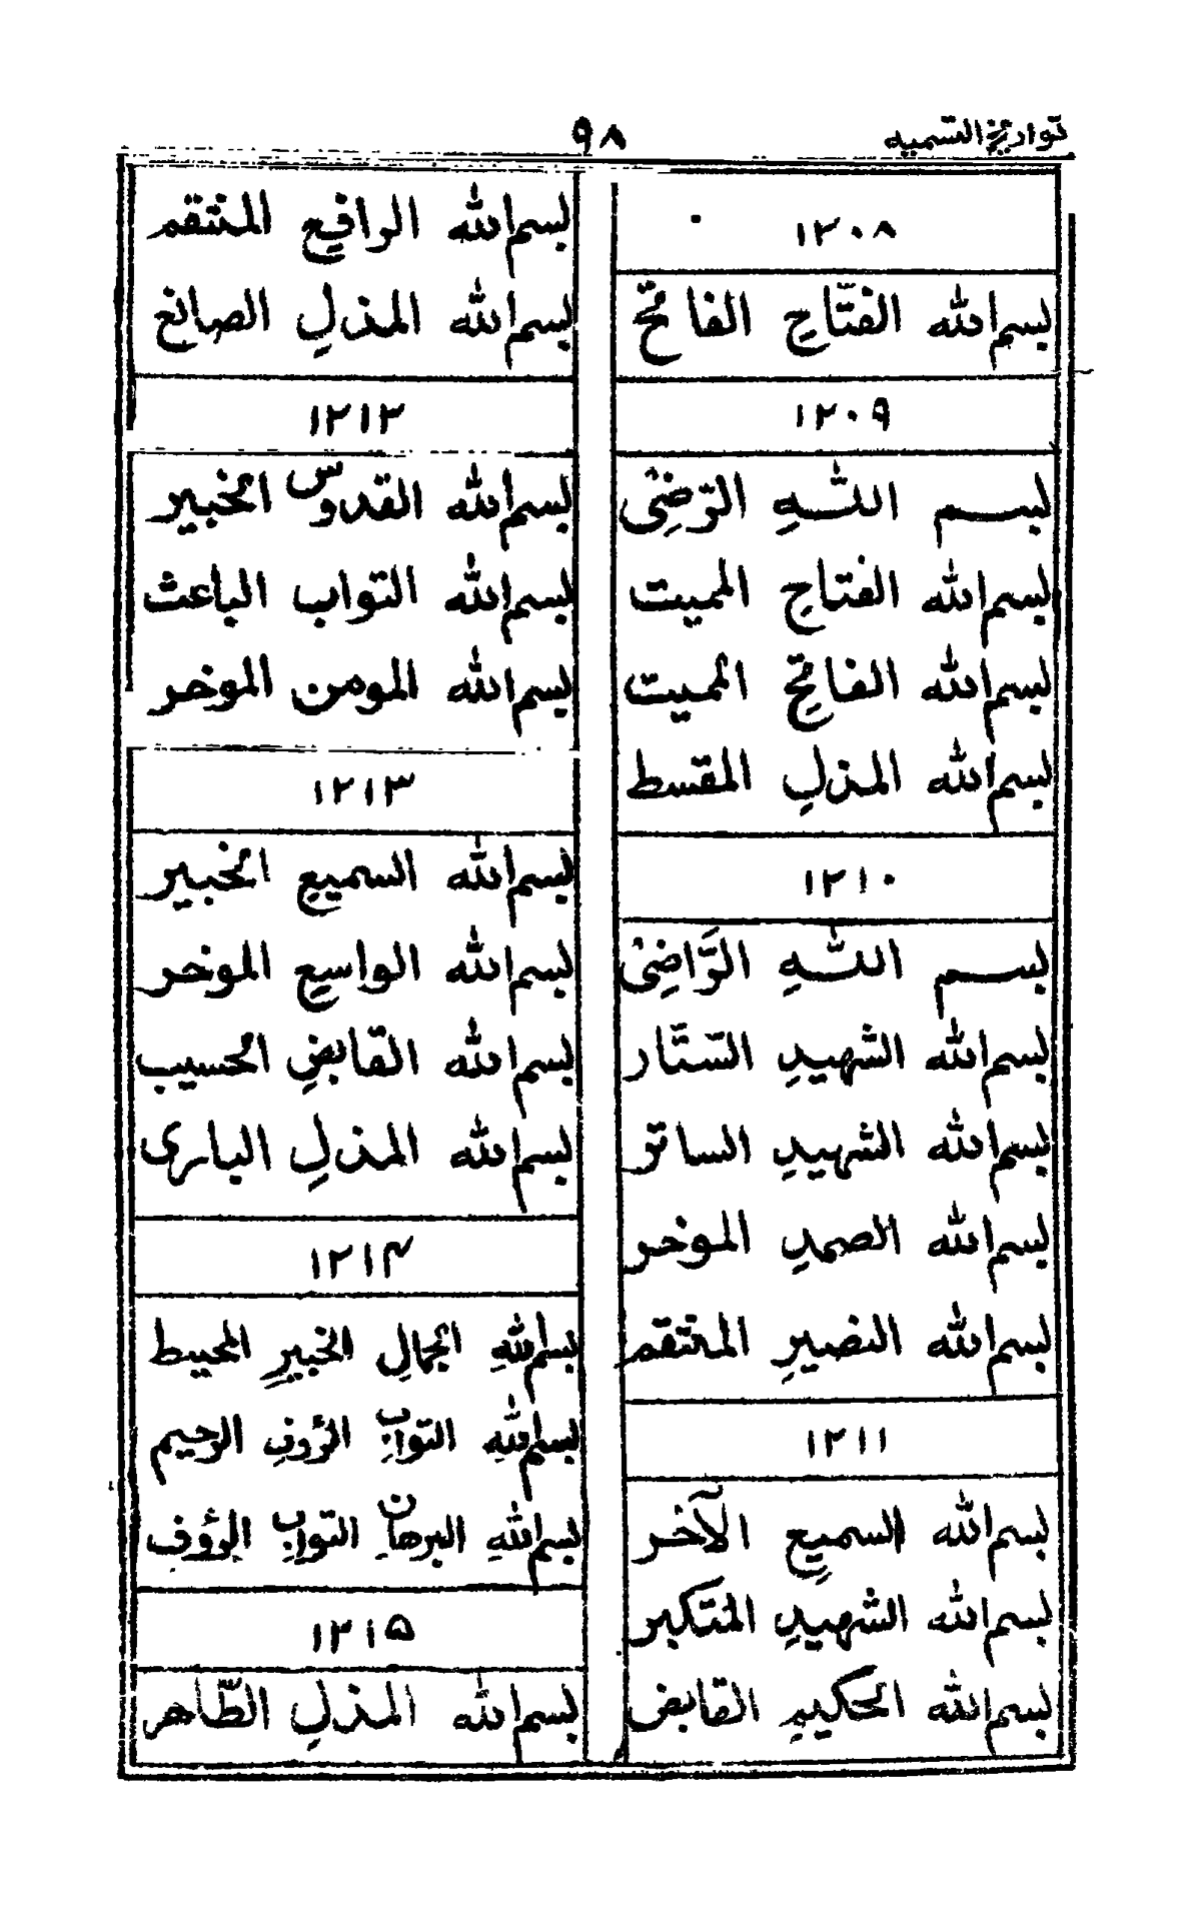 تواریخ التسمیہ
۹۸
۱۲۰۸
بسم الله الفتّاحِ الفاتح
۱۲۰۹
بسم اللّٰهِ الرَّضِیُ
بسم الله الفتاحِ المميت
بسم الله الفاتحِ المميت
بسم الله المذلِ المقسط
۱۲۱۰
بسم اللّٰهِ الرَّاضِیُ
بسم الله الشهيدِ الستّار
بسم الله الشهيدِ الساتر
بسم الله الصمدِ الموخر
بسم الله النصيرِ المنتقم
۱۲۱۱
بسم الله السميعِ الآخر
بسم الله الشهيدِ المتكبر
بسم الله الحكيمِ القابض
بسم الله الرافعِ المنتقم
بسم الله المذلِ الصانع
۱۲۱۲
بسم الله القدوس الخبير
بسم الله التواب الباعث
بسم الله المومن الموخر
۱۲۱۳
بسم الله السميع الخبير
بسم الله الواسع الموخر
بسم الله القابضِ الحسيب
بسم الله المذلِ الباری
۱۲۱۴
بسم اللهِ الجمالِ الخبيرِ المحيط
بسم اللهِ التوابِ الرؤفِ الرحيم
بسم اللهِ البرهانِ التوابِ الرؤوف
۱۲۱۵
بسم الله المذلِ الطّاهر